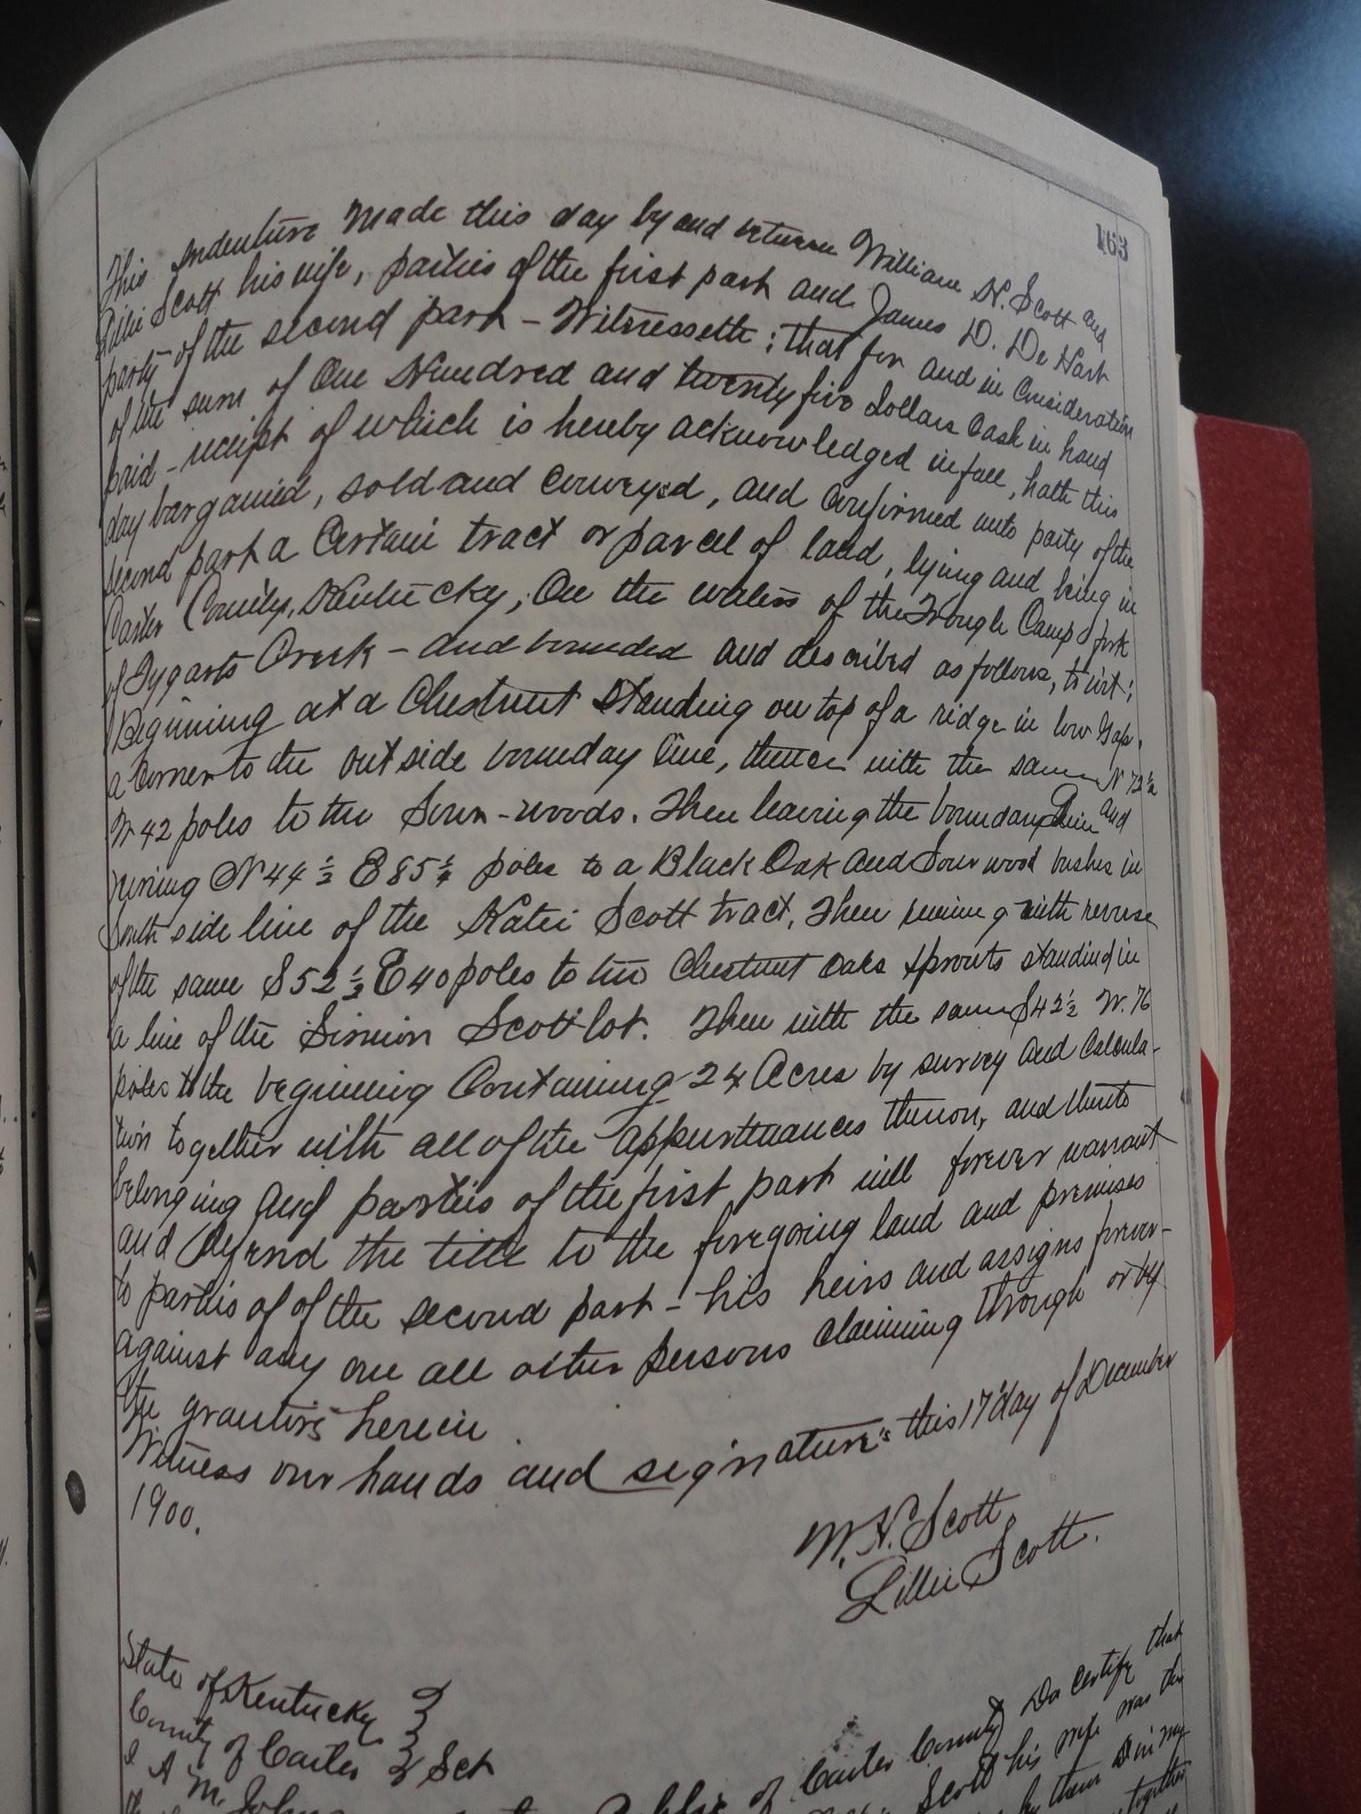 163
This Indenture Made this day by and between William H. Scott and
Lillie Scott his wife, parties of the first part and James D. De Hart
party of the second part - Witnesseth; that for and in Consideration
of the sum of One Hundred and twenty five dollars Cash in hand
paid - receipt of which is hereby acknowledged in full, hath this
day bargained, sold and conveyed, and confirmed unto party of the
second part a Certain tract or parcel of land, lying and being in
Carter County, Kentucky, On the waters of the Trough Camp fork
of Tygarts Creek - and bounded and described as follows, to wit;
Beginning at a Chestnut standing on top of a ridge in low Gap.
a corner to the outside bounday line, thence with the same N 72½
W 42 poles to the Sour-woods. Then leaving the boundary line and
runing N 44½ E 85½ poles to a Black Oak and Sourwood bushes in
South side line of the Katie Scott tract. Then runing with reverse
of the same S 52½ E 40 poles to two Chestnut Oaks sprouts standind in
a line of the Simion Scott lot. Then with the same S 42½ W. 76
poles to the beginning Containing 24 Acres by survey and Calcula-
tion together with all of the appurttnances thereon, and thereto
belonging And parties of the first part will forever warrant
and Defend the title to the foregoing land and premises
to parties of of the second part - his heirs and assigns forever-
against any one all other persons claiming through or by
the grantors herein.
Witness our hands and signatures this 17" day of December
1900.
W. H. Scott
Lillie Scott.
State of Kentucky }
County of Carter } Sct
I A M. Johns of Carter County Do Certify that
Scott his wife was this
by them
together